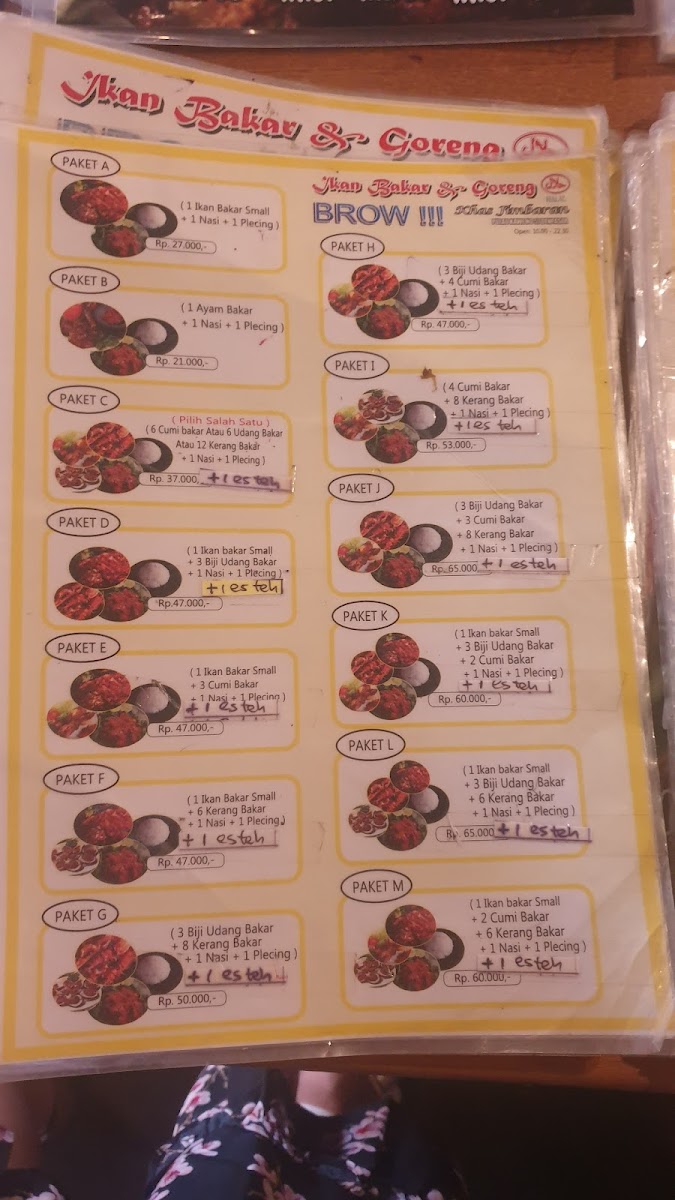 Ikan Bakar & Goreng
JN
PAKET A
( 1 Ikan Bakar Small
+ 1 Nasi + 1 Plecing )
Rp. 27.000,-
PAKET B
( 1 Ayam Bakar
+ 1 Nasi + 1 Plecing )
Rp. 21.000,-
PAKET C
( Pilih Salah Satu )
( 6 Cumi bakar Atau 6 Udang Bakar
Atau 12 Kerang Bakar
+ 1 Nasi + 1 Plecing )
Rp. 37.000,
+ 1 es teh
PAKET D
( 1 Ikan bakar Small
+ 3 Biji Udang Bakar
+ 1 Nasi + 1 Plecing )
+ 1 es teh
Rp.47.000,-
PAKET E
( 1 Ikan Bakar Small
+ 3 Cumi Bakar
+ 1 Nasi + 1 Plecing )
+ 1 es teh
Rp. 47.000,-
PAKET F
( 1 Ikan Bakar Small
+ 6 Kerang Bakar
+ 1 Nasi + 1 Plecing )
+ 1 es teh
Rp. 47.000,-
PAKET G
( 3 Biji Udang Bakar
+ 8 Kerang Bakar
+ 1 Nasi + 1 Plecing )
+ 1 es teh
Rp. 50.000,-
Ikan Bakar & Goreng
BROW !!! Khas Jimbaran
Open 10.00 - 22.30
PAKET H
( 3 Biji Udang Bakar
+ 4 Cumi Bakar
+ 1 Nasi + 1 Plecing )
+ 1 es teh
Rp. 47.000,-
PAKET I
( 4 Cumi Bakar
+ 8 Kerang Bakar
+ 1 Nasi + 1 Plecing )
+ 1 es teh
Rp. 53.000,-
PAKET J
( 3 Biji Udang Bakar
+ 3 Cumi Bakar
+ 8 Kerang Bakar
+ 1 Nasi + 1 Plecing )
Rp. 65.000
+ 1 es teh
PAKET K
( 1 Ikan bakar Small
+ 3 Biji Udang Bakar
+ 2 Cumi Bakar
+ 1 Nasi + 1 Plecing )
+ 1 es teh
Rp. 60.000,-
PAKET L
( 1 Ikan bakar Small
+ 3 Biji Udang Bakar
+ 6 Kerang Bakar
+ 1 Nasi + 1 Plecing )
Rp. 65.000
+ 1 es teh
PAKET M
( 1 Ikan bakar Small
+ 2 Cumi Bakar
+ 6 Kerang Bakar
+ 1 Nasi + 1 Plecing )
+ 1 es teh
Rp. 60.000,-